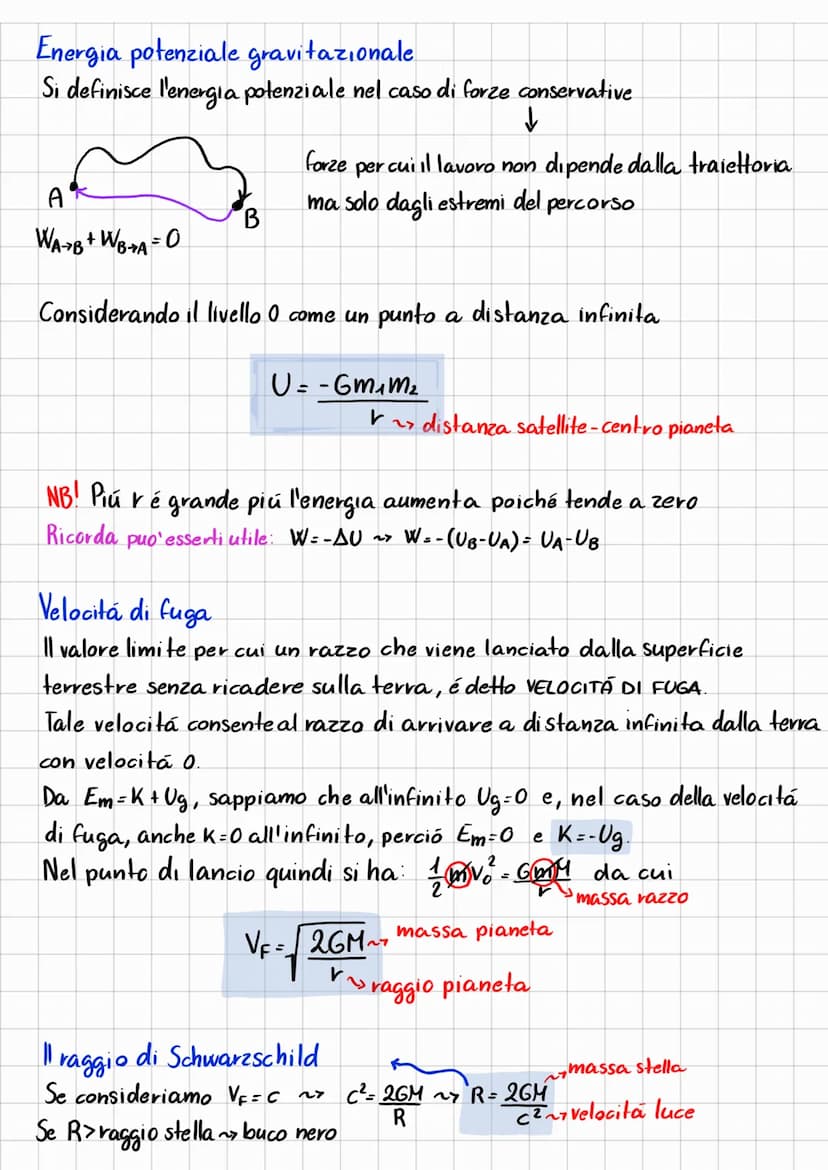 Energia potenziale gravitazionale
Si definisce l'energia potenziale nel caso di forze conservative
↓
forze per cui il lavoro non dipende dalla traiettoria
ma solo dagli estremi del percorso
A
B
W_A→B + W_B→A = 0
Considerando il livello 0 come un punto a distanza infinita
U = -Gm₁m₂ / r ⇝ distanza satellite-centro pianeta
NB! Piú r é grande piú l'energia aumenta poiché tende a zero
Ricorda puo' esserti utile: W = -ΔU ⇝ W = -(U_B - U_A) = U_A - U_B
Velocitá di fuga
Il valore limite per cui un razzo che viene lanciato dalla superficie
terrestre senza ricadere sulla terra, é detto VELOCITÁ DI FUGA.
Tale velocitá consente al razzo di arrivare a distanza infinita dalla terra
con velocitá 0.
Da Em = K + Ug, sappiamo che all'infinito Ug = 0 e, nel caso della velocitá
di fuga, anche K = 0 all'infinito, perció Em = 0 e K = -Ug.
Nel punto di lancio quindi si ha: 1/2 m v₀² = GmM / r da cui
massa razzo
V_F = √(2GM / r) ⇝ massa pianeta
⇝ raggio pianeta
Il raggio di Schwarzschild
Se consideriamo V_F = c ⇝ c² = 2GM / R ⇝ R = 2GM / c²
⇝ massa stella
⇝ velocitá luce
Se R > raggio stella ⇝ buco nero